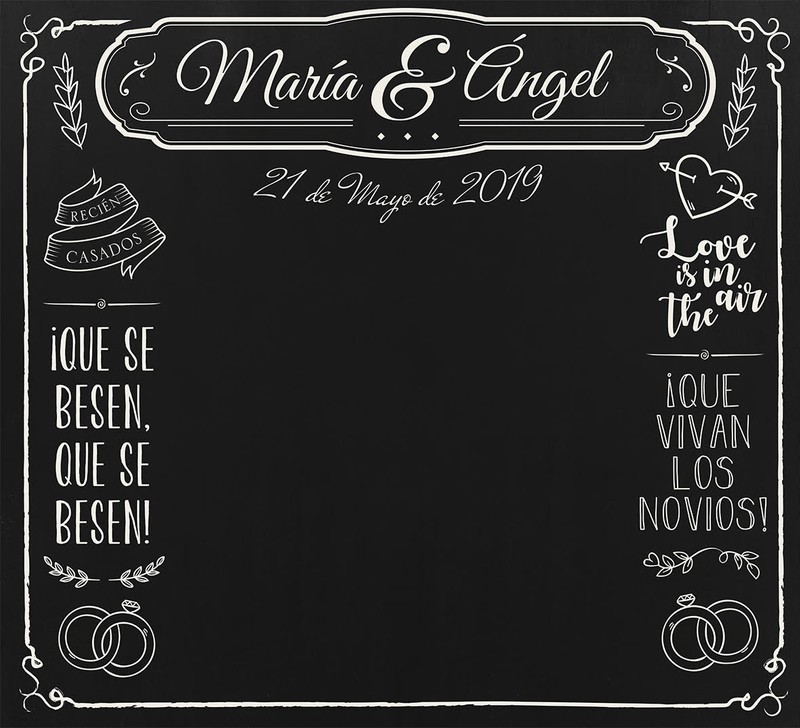 María & Ángel
21 de Mayo de 2019
RECIÉN
CASADOS
¡QUE SE
BESEN,
QUE SE
BESEN!
Love
is in
the air
¡QUE
VIVAN
LOS
NOVIOS!